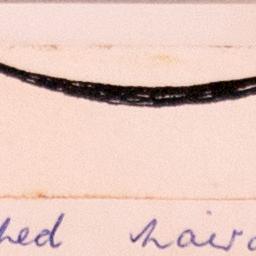 hed haira